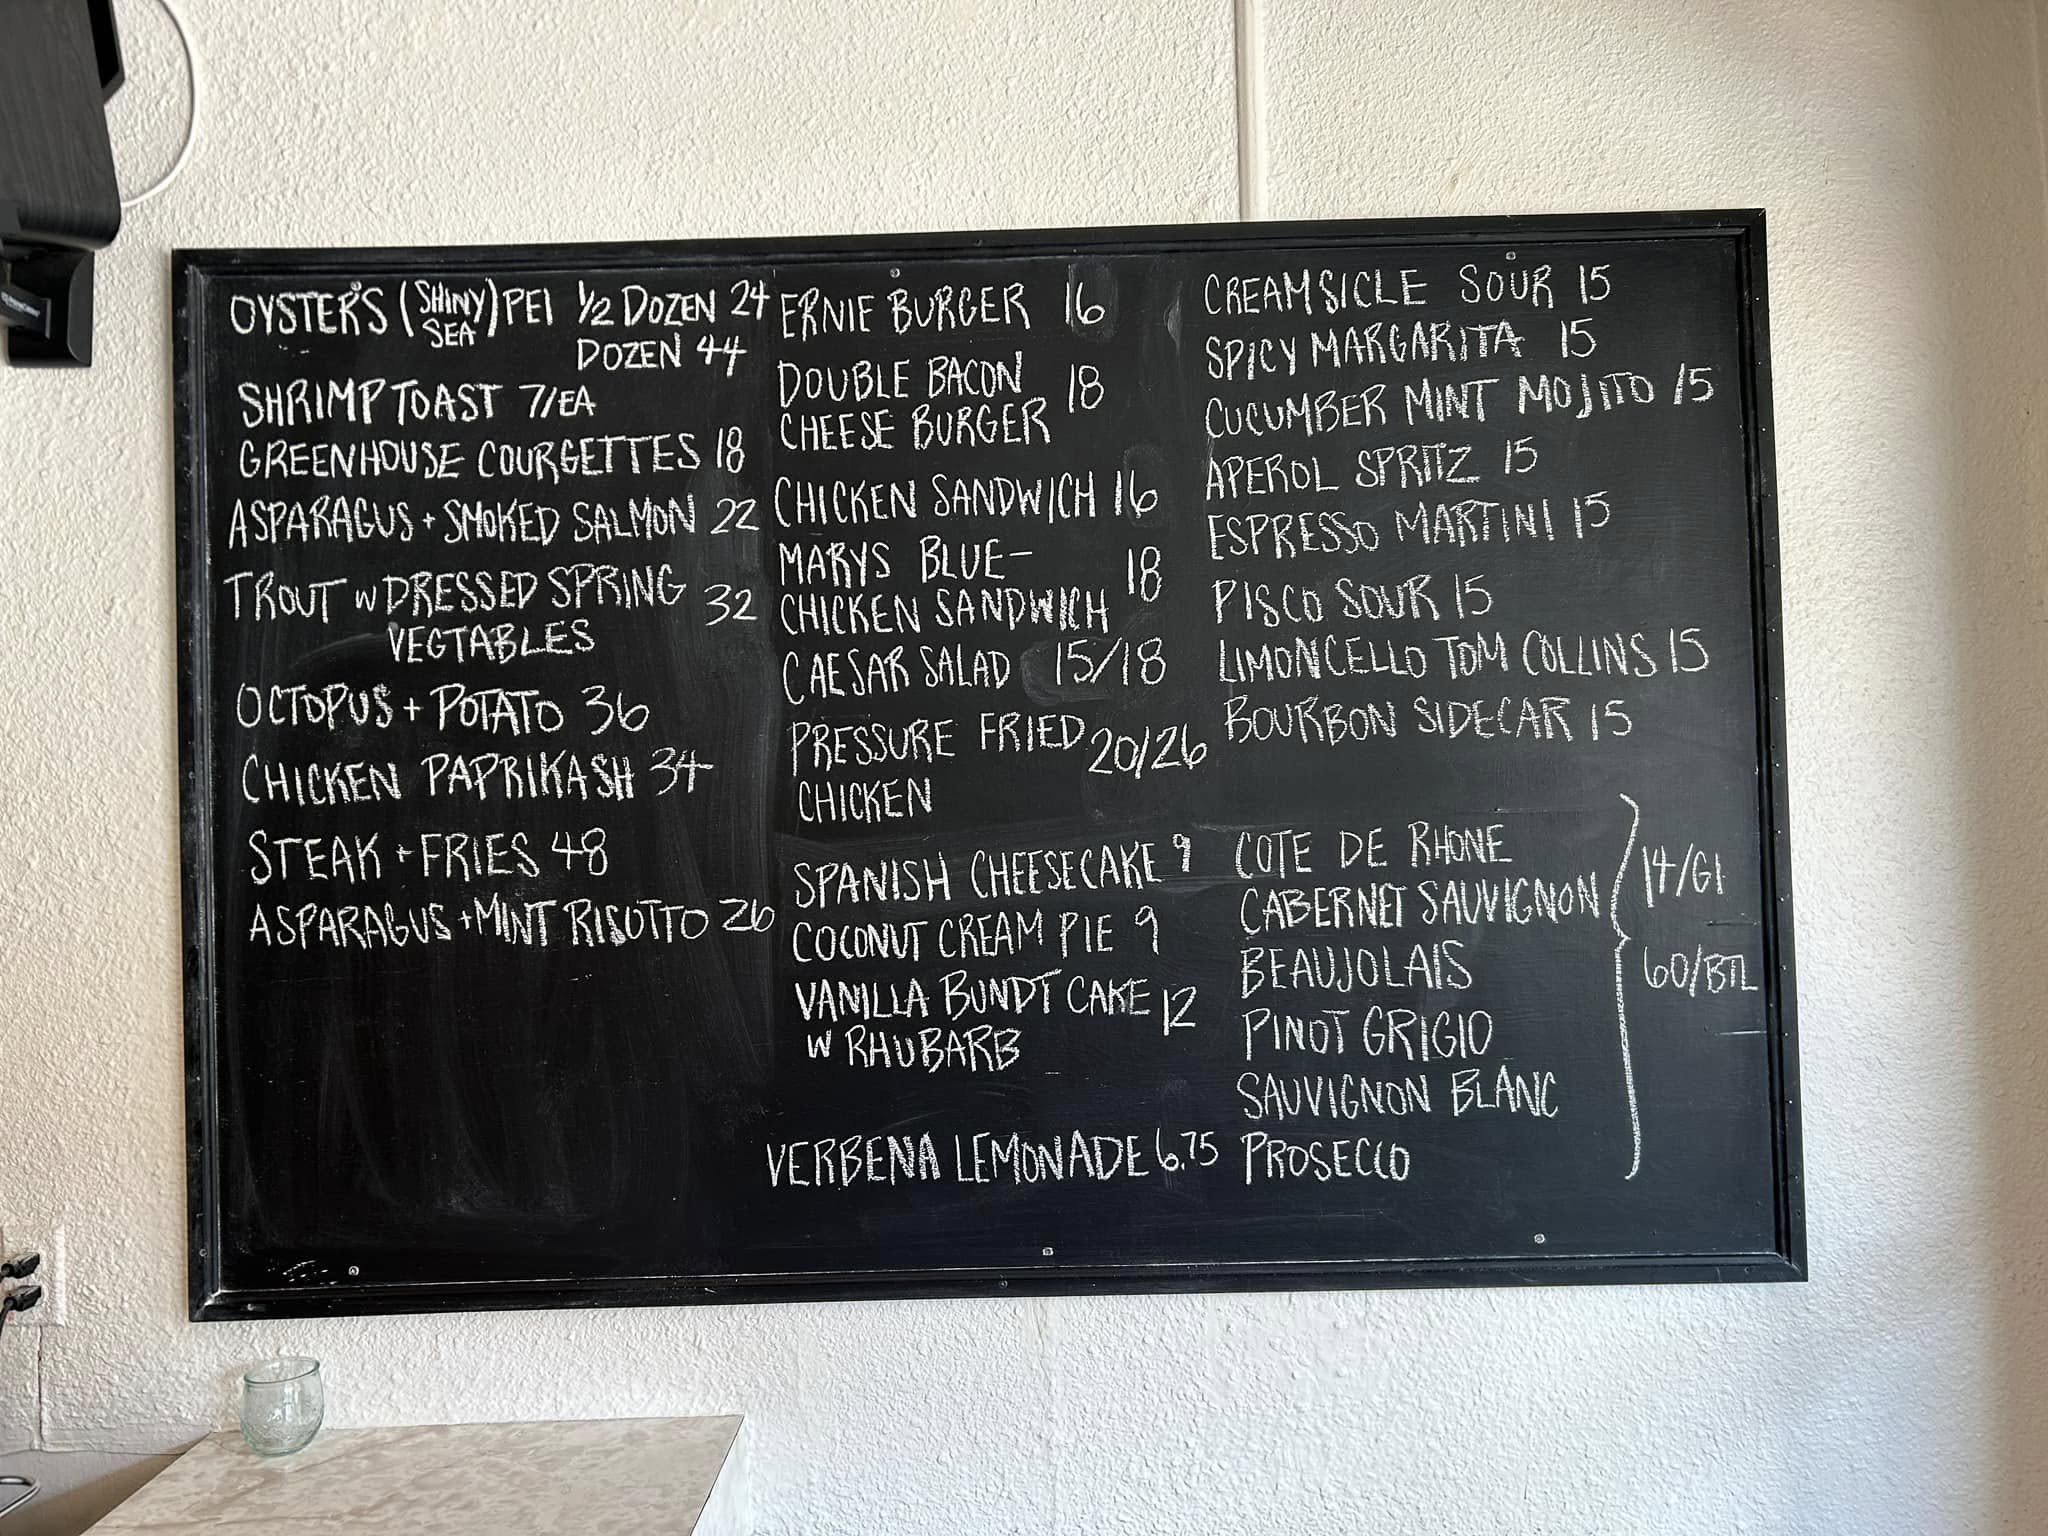 OYSTER'S (SHINY SEA) PEI 1/2 DOZEN 24
DOZEN 44
SHRIMP TOAST 7/EA
GREENHOUSE COURGETTES 18
ASPARAGUS + SMOKED SALMON 22
TROUT W DRESSED SPRING
VEGTABLES 32
OCTOPUS + POTATO 36
CHICKEN PAPRIKASH 34
STEAK + FRIES 48
ASPARAGUS + MINT RISOTTO 26
ERNIE BURGER 16
DOUBLE BACON
CHEESE BURGER 18
CHICKEN SANDWICH 16
MARYS BLUE-
CHICKEN SANDWICH 18
CAESAR SALAD 15/18
PRESSURE FRIED 20/26
CHICKEN
SPANISH CHEESECAKE 9
COCONUT CREAM PIE 9
VANILLA BUNDT CAKE 12
W RHUBARB
VERBENA LEMONADE 6.75
CREAMSICLE SOUR 15
SPICY MARGARITA 15
CUCUMBER MINT MOJITO 15
APEROL SPRITZ 15
ESPRESSO MARTINI 15
PISCO SOUR 15
LIMONCELLO TOM COLLINS 15
BOURBON SIDECAR 15
COTE DE RHONE
CABERNET SAUVIGNON
BEAUJOLAIS
PINOT GRIGIO
SAUVIGNON BLANC
PROSECCO
14/Gl
60/BTL